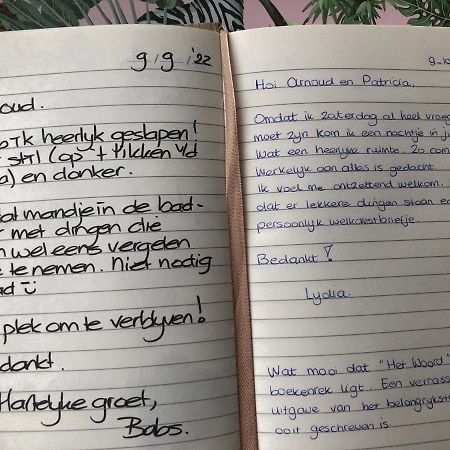 9/9 '22
oud.
Ik heerlijk geslapen!
stil (op 't tikken v/d
) en donker.
mandje in de bad-
met dingen die
wel eens vergeten
te nemen. Niet nodig
plek om te verblijven!
dankt.
Hartelijke groet,
Babs.
9-10
Hoi Arnoud en Patricia,
Omdat ik zaterdag al heel vroeg
moet zijn kom ik een nachtje in ju
Wat een heerlijke ruimte. Zo com
Werkelijk aan alles is gedacht.
Ik voel me ontzettend welkom.
dat er lekkere dingen staan e
persoonlijk welkomstbriefje.
Bedankt!
Lydia.
Wat mooi dat "Het Woord"
boekenrek ligt. Een verrass
uitgave van het belangrijkst
ooit geschreven is.